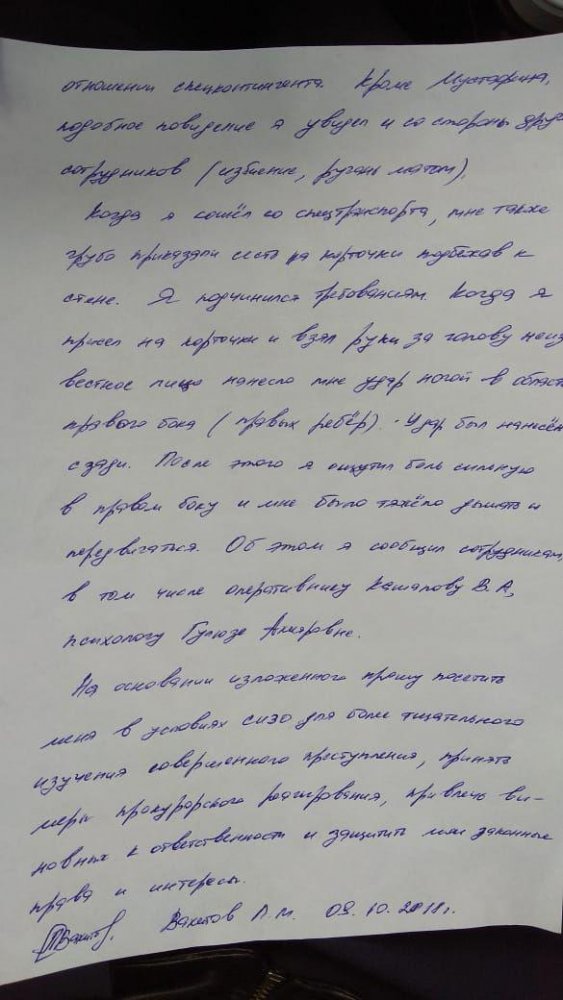 отношении спецконтингента. Кроме Мустафина,
подобное поведение я увидел и со стороны друг
сотрудников (избиение, ругань матом).
Когда я сошёл со спецтранспорта, мне также
грубо приказали сесть на корточки подбежав к
стене. Я подчинился требованиям. Когда я
присел на корточки и взял руки за голову неиз
вестное лицо нанесло мне удар ногой в област
правого бока (правых рёбер). Удар был нанесён
сзади. После этого я ощутил боль сильную
в правом боку и мне было тяжело дышать и
передвигаться. Об этом я сообщил сотрудникам,
в том числе оперативнику Кашапову В.А,
психологу Гузюзе
На основании изложенного прошу посетить
меня в условиях сизо для более тщательного
изучения совершенного преступления, принять
меры прокурорского реагирования, привлечь ви-
новных к ответственности и защитить мои законные
права и интересы.
Вахитов Л.М. 09.10.2018г.